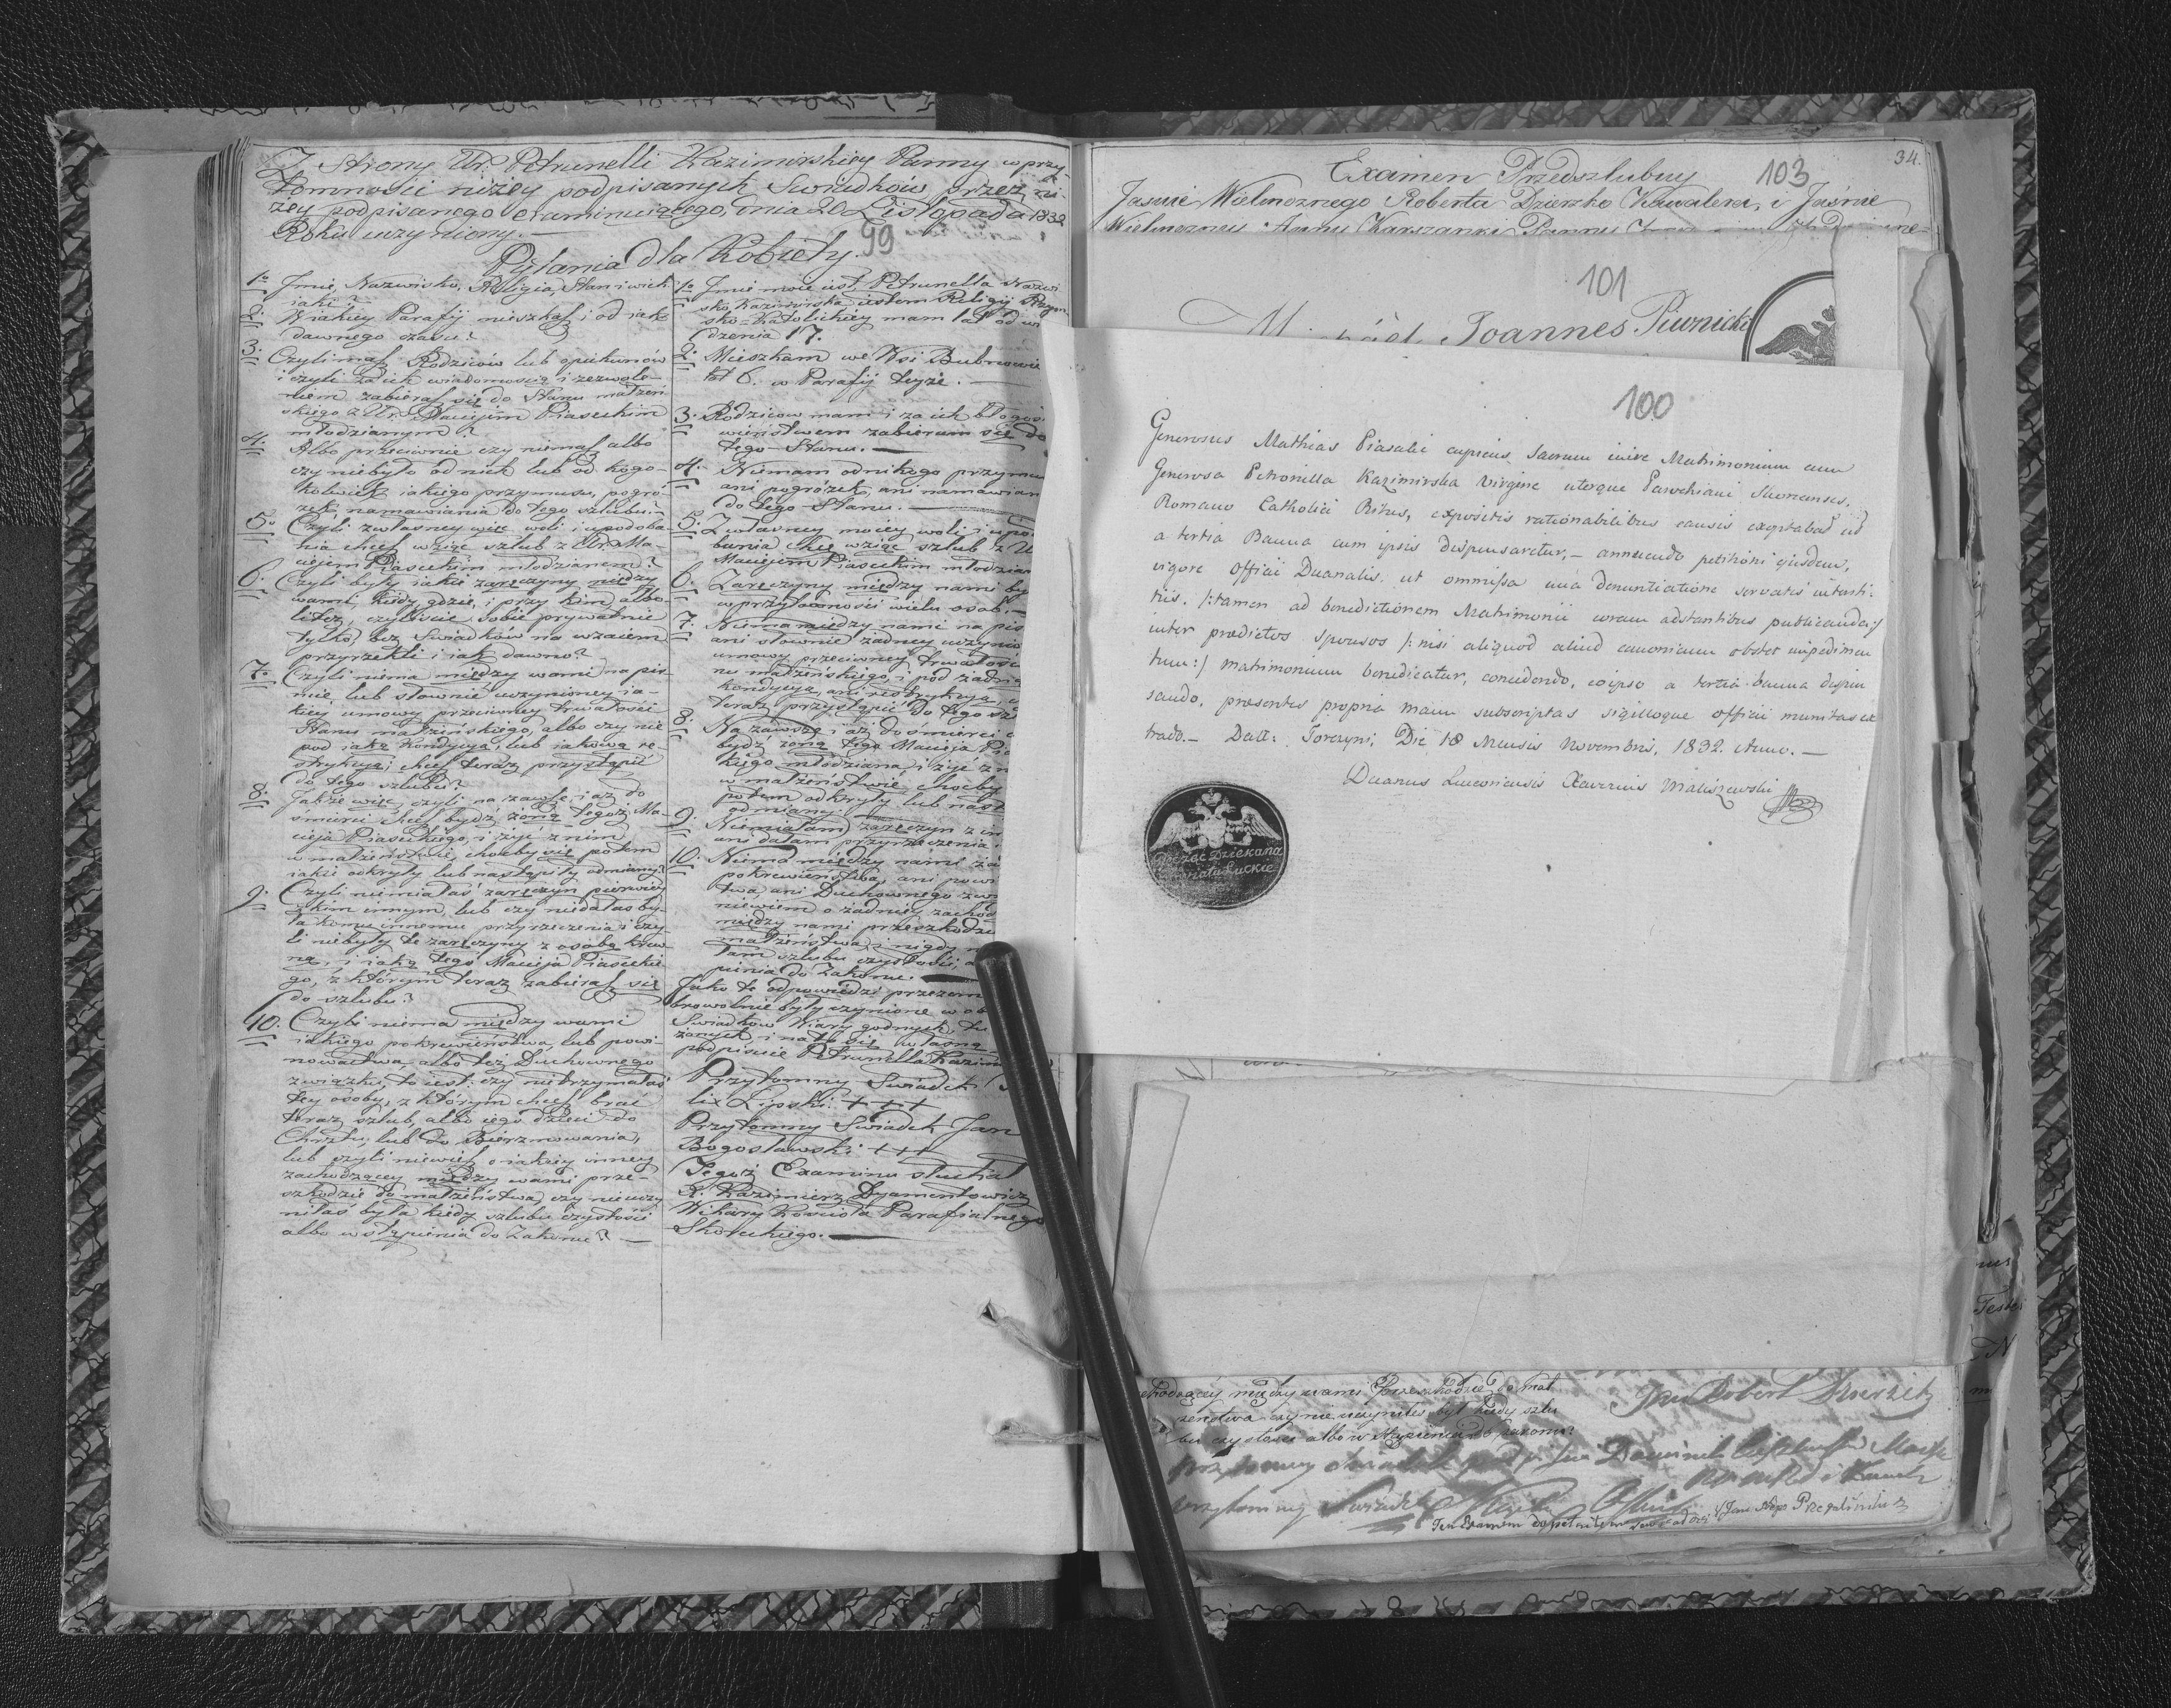 Z strony Ur. Petrunelli Kazimirskiey Panny w przy-
tomności niżey podpisanych Swiadków przez ni-
żey podpisanego examinuiącego, dnia 20 Listopada 1832
Roku uczyniony.—
99
Pytania dla Kobiety.
1o Jmie, Nazwisko, Religia, Stan i wiek
iaki?
2. W iakiey Parafij mieszkasz i od iak
dawnego czasu?
3. Czyli masz Rodziców lub opiekunów
i czyli za ich wiadomością i zezwole-
niem zabierasz się do Stanu małżeń
skiego z Ur. Maciejem Piaseckim
młodzianem?
4. Albo przeciwnie czy niemasz albo
czy niebyło od nich lub od kogo-
kolwiek iakiego przymusu, pogró-
żek, namawiania do tego szlubu.—
5o Czyli z własney więc woli i upodoba-
nia chcesz wziąć szlub z Ur. Ma-
ciejem Piaseckim młodzianem?
6. Czyli były iakie zaręczyny między
wami, kiedy, gdzie, i przy kim, albo-
liteż, czyliście sobie prywatnie
tylko, bez Swiadków na wzaiem
przyrzekli i iak dawno?
7o Czyli niema między wami na piś-
mie lub słownie uczynioney ia-
kiey umowy przeciwney trwałości
Stanu małżeńskiego, albo czy nie
pod iaką Kondycyą, lub iakową re-
strykcyą, chcesz teraz przystąpić
do tego szlubu?
8. Jakże więc, czyli na zawsze i aż do
smierci chcesz bydź żoną tegoż Ma-
cieja Piaseckiego, i żyć z nim
w małżeństwie, choćby się potem
iakie odkryły lub nastąpiły odmiany?
9. Czyli niemiałaś zaręczyn pierwiey
z kim innym, lub czy niedałaś by-
ła komu innemu przyrzeczenia i czy-
li niebyły te zaręczyny z osobą krew-
ną, i iaką tego Macieja Piaseckie-
go, z którym teraz zabierasz się
do szlubu?
10. Czyli niema między wami
iakiego pokrewieństwa, lub powi-
nowactwa, albo też Duchownego
związku, to iest: czy nietrzymałaś
tey osoby, z którym chcesz brać
teraz szlub, albo iego dzieci do
Chrztu, lub do Bierzmowania,
lub czyli niewiesz o iakiey inney
zachodzącey między wami prze-
szkodzie do małżeństwa, czy nieuczy
niłaś była kiedy szlubu czystości
albo wstąpienia do Zakonu?—
1o Jmie moie iest Petrunella Nazwi
sko Kazimirska iestem Religij Rzym-
sko-Katolickiey mam lat od uro
dzenia 17.
2. Mieszkam we Wsi Bubnowie
lat 6. w Parafij teyże.—
3. Rodziców mam i za ich błogosł
wieństwem zabieram się do
tego Stanu.—
4. Niemam od nikogo przymu
ani pogróżek, ani namawian
do tego Stanu.—
5. Z własney moiey woli i upo
bania chcę wziąć szlub z U
Maciejem Piaseckim młodzian
6. Zaręczyny między nami by
w przytomności wielu osob.—
7. Niema między nami na piś
ani słownie żadney uczynio
umowy przeciwney trwałości
nu małżeńskiego, i pod żadną
kondycyą, ani restrykcyą,
teraz przystąpić do tego sz
8. Na zawsze i aż do smierci
bydź żoną tego Macieja Pia
kiego młodziana i żyć z n
w małżeństwie, choćby
potem odkryły lub nast
odmiany.
9. Niemiałam zaręczyn z in
ani dałam przyrzeczenia
10. Niema między nami ża
pokrewieństwa, ani powi
twa, ani Duchownego zwi
niewiem o żadney zachod
między nami przeszkodzie
małżeństwa, i nigdy n
łam szlubu czystości, a
pienia do Zakonu.—
Jako te odpowiedzi przezem
browolnie były czynione w ob
Swiadków Wiary godnych, tu
żonych, i na to się własną
podpisuie Petrunella Kazim
Przytomny Swiadek
lix Lipski +++
Przytomny Swiadek Jan
Bogosławski +++
Tegoż Examinu słuchał
X. Kazimierz Dyamentowicz
Wikary Kościoła Parafialnego
Skoreckiego.—
34.
Examen Przedszlubny 103
Jasnie Wielmożnego Roberta Dzierzko Kawalera, i Jaśnie
Wielmożney Anny Karszanki Panny
101
Joannes Piwnicki
100
Generosus Mathias Piasecki cupiens Sacrum inire Matrimonium cum
Generosa Petronilla Kazimirska Virgine uterque Parochiani Skorcenses,
Romano Catholici Ritus, expositis rationabilibus causis exoptabat ut
a tertia Banna cum ipsis dispensaretur,— annuendo petitioni ejusdem,
vigore Officii Decanalis, ut ommissa una denuntiatione servatis intersti-
tiis. /: tamen ad benedictionem Matrimonii coram adstantibus publicanda :/
inter praedictos sponsos /: nisi aliquod aliud canonicum obstet impedimen
tum :/ matrimonium benedicatur, concedendo, eoipso a tertia banna dispen
sando, praesentes propria manu subscriptas sigilloque officii munitas ex
trado.— Datt: Torczyni, Die 18 Mensis Novembris, 1832. Anno.—
Decanus Luceoriensis Xaverius Maliszewski
Pieczęć Dziekana
Powiatu Łuckie
chodzącey między wami przeszkodzie do mał
żeństwa, czy nie uczyniłeś był kiedy szlu
bu czystości albo wstąpienia do zakonu?
Jan Robert Dzierżek
Przytomny Swiadek
Przytomny Swiadek
Ten Examen